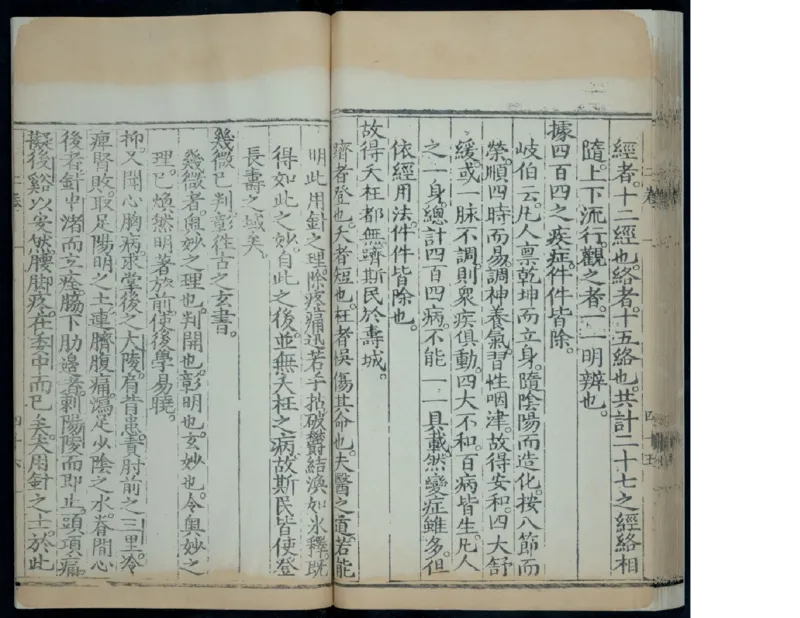 經者。十二經也。絡者。十五絡也。共計二十七之經絡相
隨。上下流行。觀之者。一一明辨也。
據四百四之疾症。件件皆除。
岐伯云。凡人禀乾坤而立身。隨陰陽而造化。按八節而
榮。順四時而易。調神養氣。習性咽津。故得安和。四大舒
緩。或一脉不調。則衆疾俱動。四大不和。百病皆生。凡人
之一身。總計四百四病。不能一一具載。然變症雖多。但
依經用法。件件皆除也。
故得夭枉都無。躋斯民於壽域。
躋者登也。夭者短也。枉者悞傷其命也。夫醫之道。若能
明此用針之理。除疼痛迅若手拈。破欝結渙如氷釋。既
得如此之妙。自此之後。並無夭枉之病。故斯民皆使登
長壽之域矣。
幾微已判。彰徃古之玄書。
幾微者。奥妙之理也。判開也。彰明也。玄妙也。令奥妙之
理。已煥然明著於前。使後學易曉。
抑又聞心胸病。求掌後之大陵。肩背患。責肘前之三里。冷
痺腎敗。取足陽明之土。連臍腹痛。瀉足少陰之水。脊間心
後者。針中渚而立痊。脇下肋邊者。剌陽陵而即止。頭項痛。
擬後谿以安然。腰脚疼。在委中而已矣。夫用針之士。於此